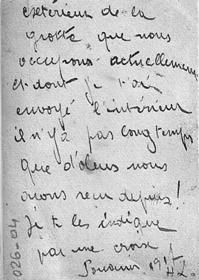 extérieur de la
grotte que nous
occupons actuellement
et dont je t'ai
envoyé l'intérieur
il n'y a pas longtemps
que d'obus nous
avons reçu depuis!
je te les indique
par une croix
Souvenir 19
026-04